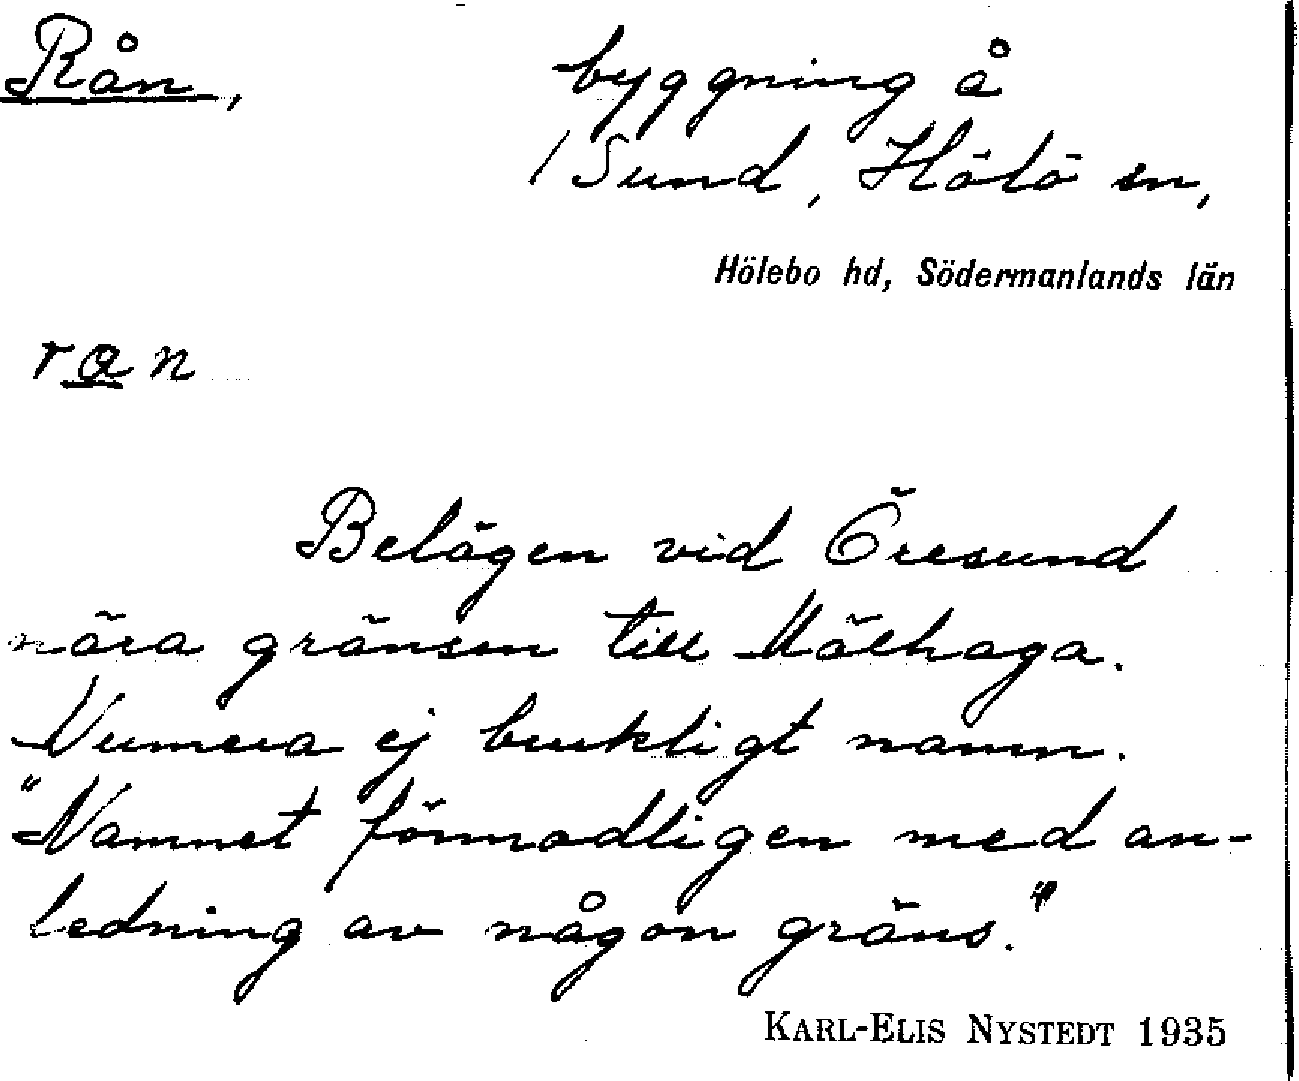 Rån, byggning å
/ Sund, Hölö sn,
Hölebo hd, Södermanlands län
ran
Belägen vid Öresund
nära gränsen till Mälhaga.
Numera ej brukligt namn.
"Namnet förmodligen med an-
ledning av någon gräns."
KARL-ELIS NYSTEDT 1935